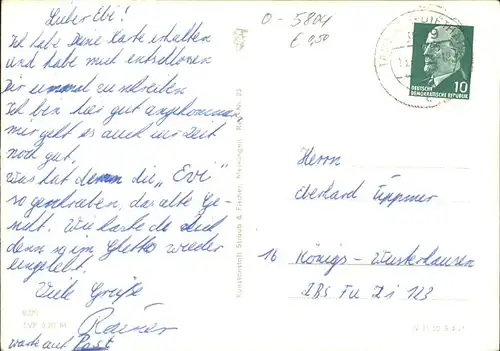 Lieber Ebi!
Ich habe Deine Karte erhalten
und habe mich entschlossen
Dir einmal zu schreiben
Ich bin hier gut angekommen,
mir geht es auch zur Zeit
noch gut.
Was hat denn die „Evi"
so geschrieben, das alte Ge-
. Wie hast du dich
denn so im Ghetto wieder
eingelebt.
Viele Grüße
Rainer
warte auf Post
0-5804
€ 0,50
10
DEUTSCHE
DEMOKRATISCHE REPUBLIK
Herrn
Eberhard Tippmer
16 Königs-Wusterhausen
ZBS Fu Zi 123
Kunstanstalt Straub & Fischer, Meiningen